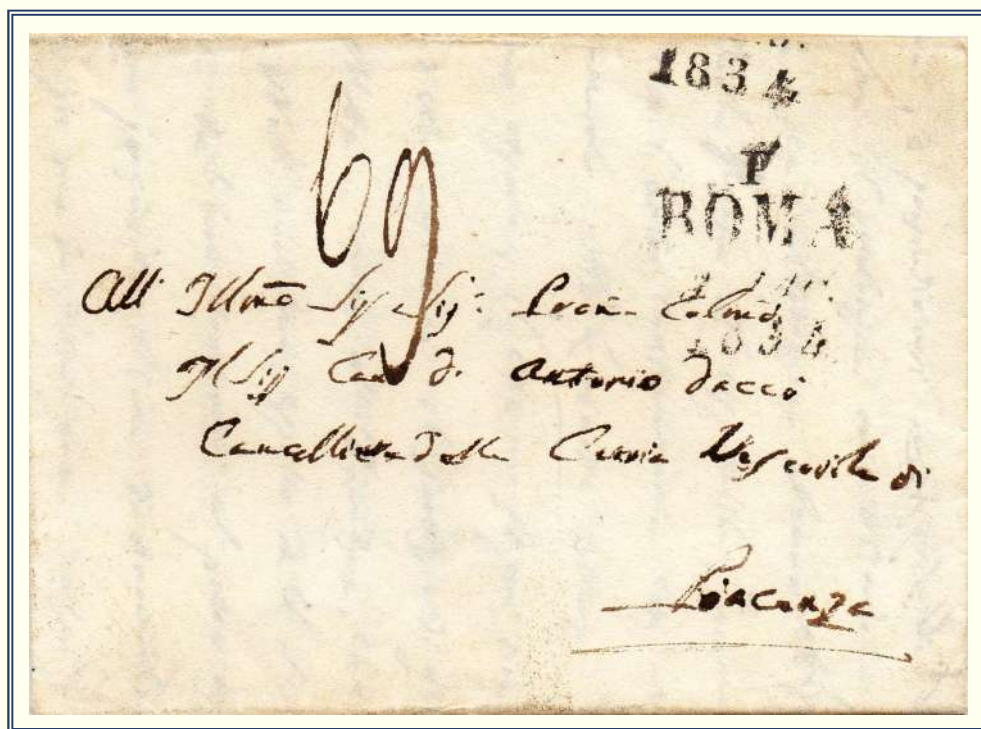 1834
P
ROMA
1834
69
All' Illmo Sig Sig: Prōn Colmo
Il Sig Can D. Antonio Daccò
Cancelliere della Curia Vescovile di
Piacenza